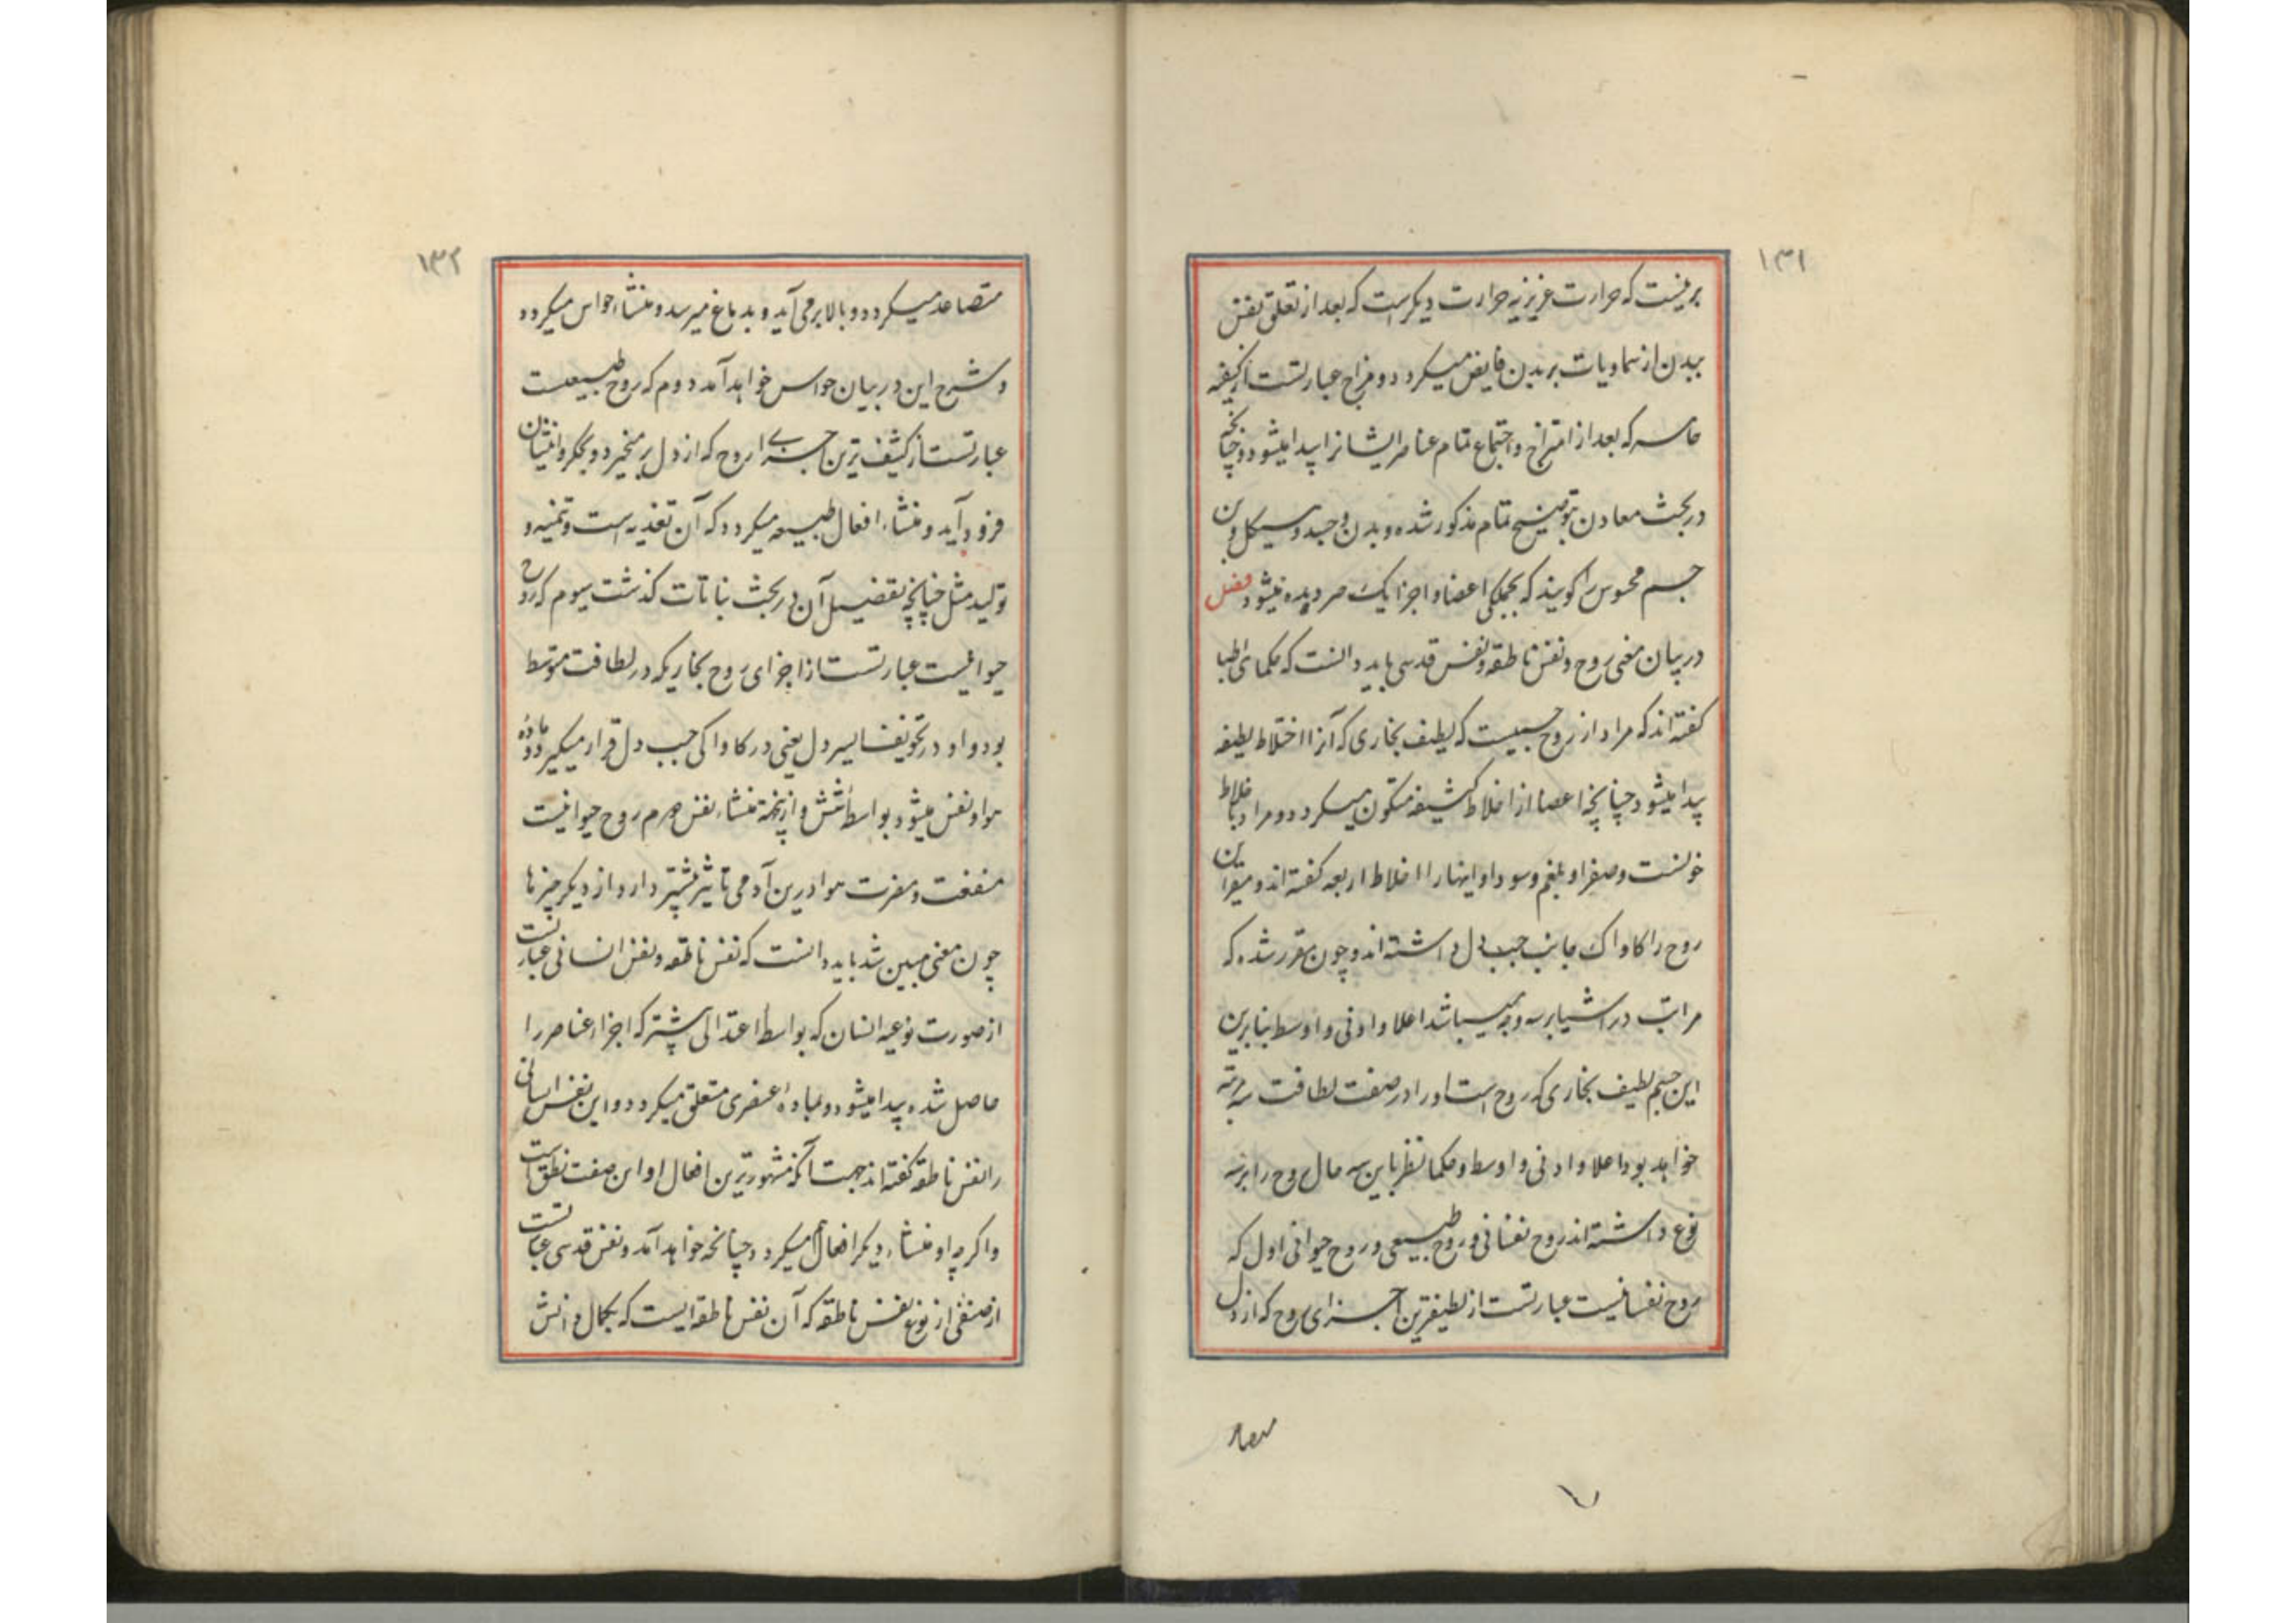 ۱۳۱
برینست که حرارت غریزیه حرارت دیگرست که بعد از تعلق نفس
ببدن از سماویات بر بدن فایض میگردد و مزاج عبارتست از کیفیه
خامسه که بعد از امتزاج و اجتماع تمام عناصر ایشانرا پیدا میشود چنانچه
در بحث معادن بتوضیح تمام مذکور شده و بدن و جسد و هیکل و تن
جسم محسوس را گویند که بجملگی اعضا و اجزا یک صر دیده میشود فصل
در بیان معنی روح و نفس ناطقه و نفس قدسی باید دانست که حکمای اطبا
گفته اند که مراد از روح جسمیست که لطیف بخاری که آنرا اختلاط لطیفه
پیدا میشود چنانچه اعضا از اخلاط کثیفه متکون میگردد و مراد باخلاط
خونست و صفرا و بلغم و سودا و اینهارا اخلاط اربعه گفته اند و مقر این
روح را کاواک جانب چپ دل داشته اند و چون مقرر شده که
مراتب در اشیا بر سه وجه میباشد اعلا و ادنی و اوسط بنابرین
این جسم لطیف بخاری که روح است اورا در صفت لطافت سه مرتبه
خواهد بود اعلا و ادنی و اوسط و حکما نظر باین سه حال روح را بر سه
نوع داشته اند روح نفسانی و روح طبیعی و روح حیوانی اول که
روح نفسانیست عبارتست از لطیفترین اجزای روح که از دل
متصاعد
۱۳۲
متصاعد میگردد و بالا بر می آید و بدماغ میرسد و منشاء حواس میگردد
و شرح این در بیان حواس خواهد آمد دوم که روح طبیعیست
عبارتست از کثیف ترین اجزای روح که از دل بر میخیزد و بجگر و انثیان
فرود آید و منشاء افعال طبیعیه میگردد که آن تغذیه است و تنمیه و
تولید مثل چنانچه تفضیل آن در بحث نباتات گذشت سیوم که روح
حیوانیست عبارتست از اجزای روح بخاریکه در لطافت متوسط
بود و او در تجویف ایسر دل یعنی در کاواکی جب دل قرار میگیرد و ماده
هوا و نفس میشود بواسطه شش و از پنجهته منشاء نفس هم روح حیوانیست
منفعت و مضرت هوا درین آدمی تاثیر بیشتر دارد از دیگر چیزها
چون معنی مبین شد باید دانست که نفس ناطقه و نفس انسانی عبارتست
از صورت نوعیه انسان که بواسطه اعتدالی بیشتر که اجزاء عناصر را
حاصل شده پیدا میشود و بماده عنصری متعلق میگردد و این نفس انسانی
را نفس ناطقه گفته اند بجهت آنکه مشهورترین افعال او این صفت نطق است
و اگر چه او منشاء دیگر افعال میگردد چنانچه خواهد آمد و نفس قدسی عبارتست
از صنفی از نوع نفس ناطقه که آن نفس ناطقه ایست که بکمال دانش